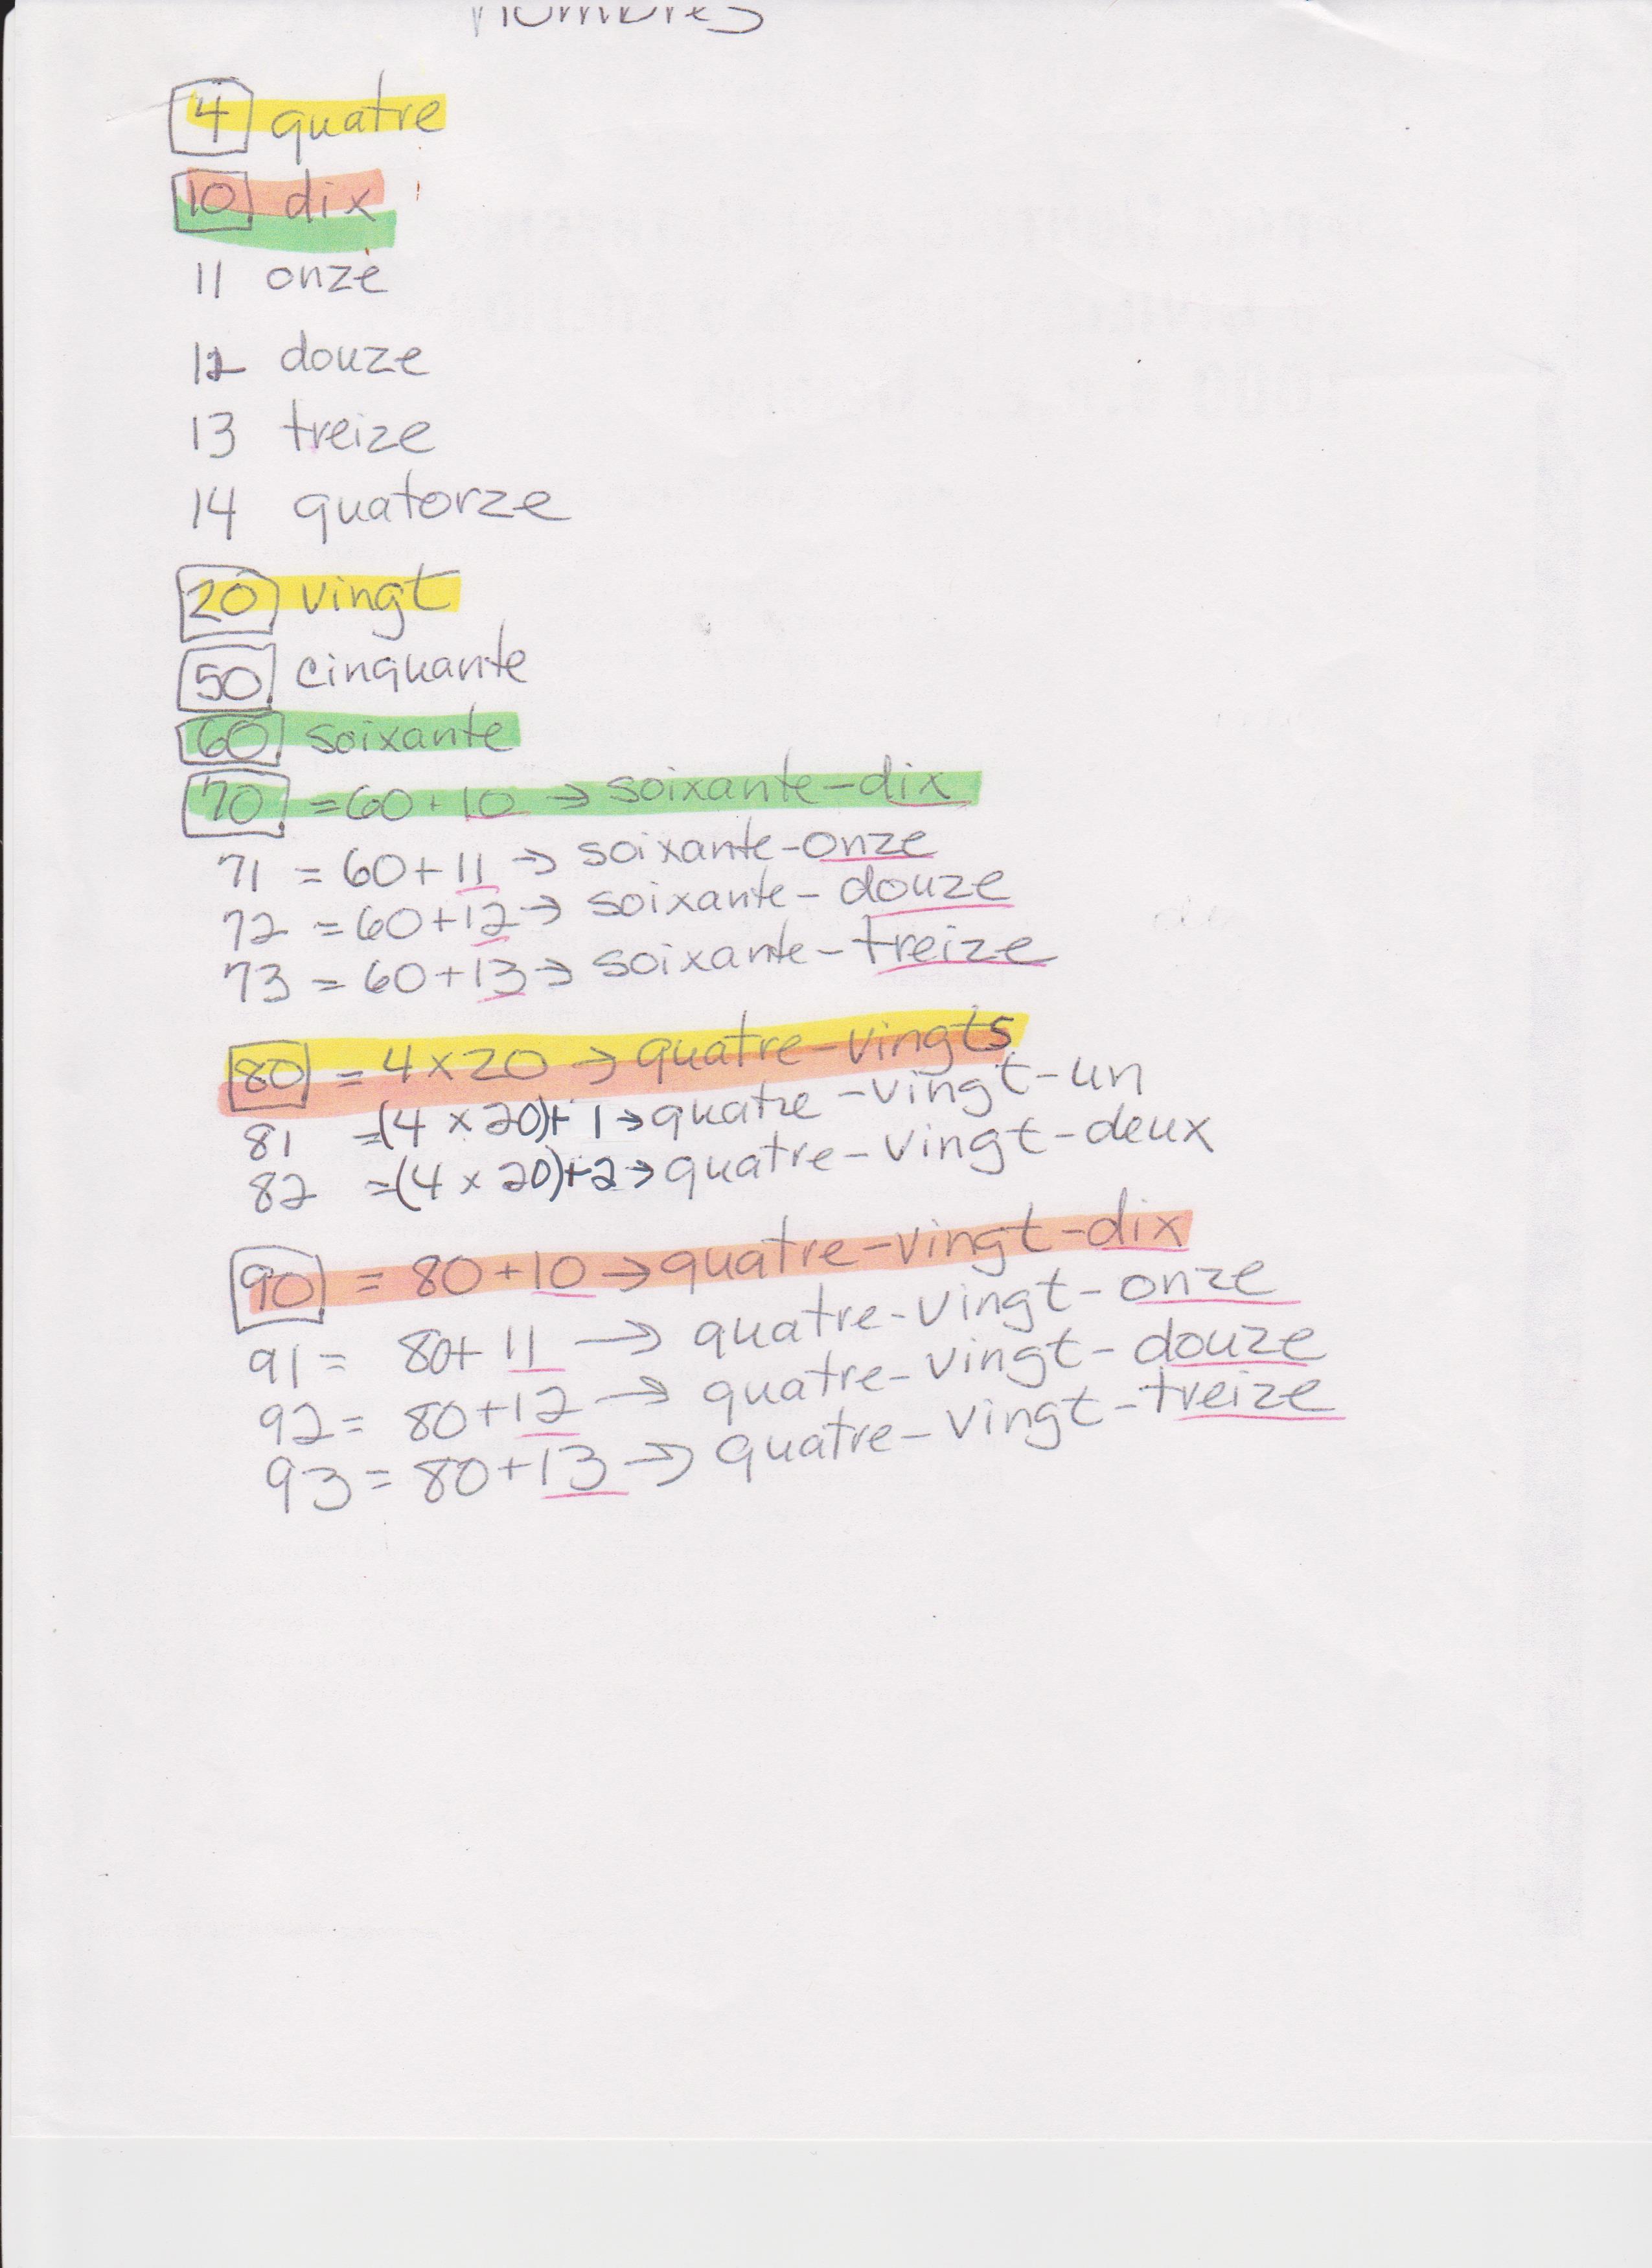 Nombres
4 quatre
10 dix
11 onze
12 douze
13 treize
14 quatorze
20 vingt
50 cinquante
60 soixante
70 = 60 + 10 → soixante-dix
71 = 60+11 → soixante-onze
72 = 60+12 → soixante-douze
73 = 60+13 → soixante-treize
80 = 4x20 → quatre-vingts
81 =(4 x 20)+ 1 → quatre-vingt-un
82 =(4 x 20)+2 → quatre-vingt-deux
90 = 80+10 → quatre-vingt-dix
91 = 80+ 11 → quatre-vingt-onze
92 = 80+12 → quatre-vingt-douze
93 = 80+13 → quatre-vingt-treize